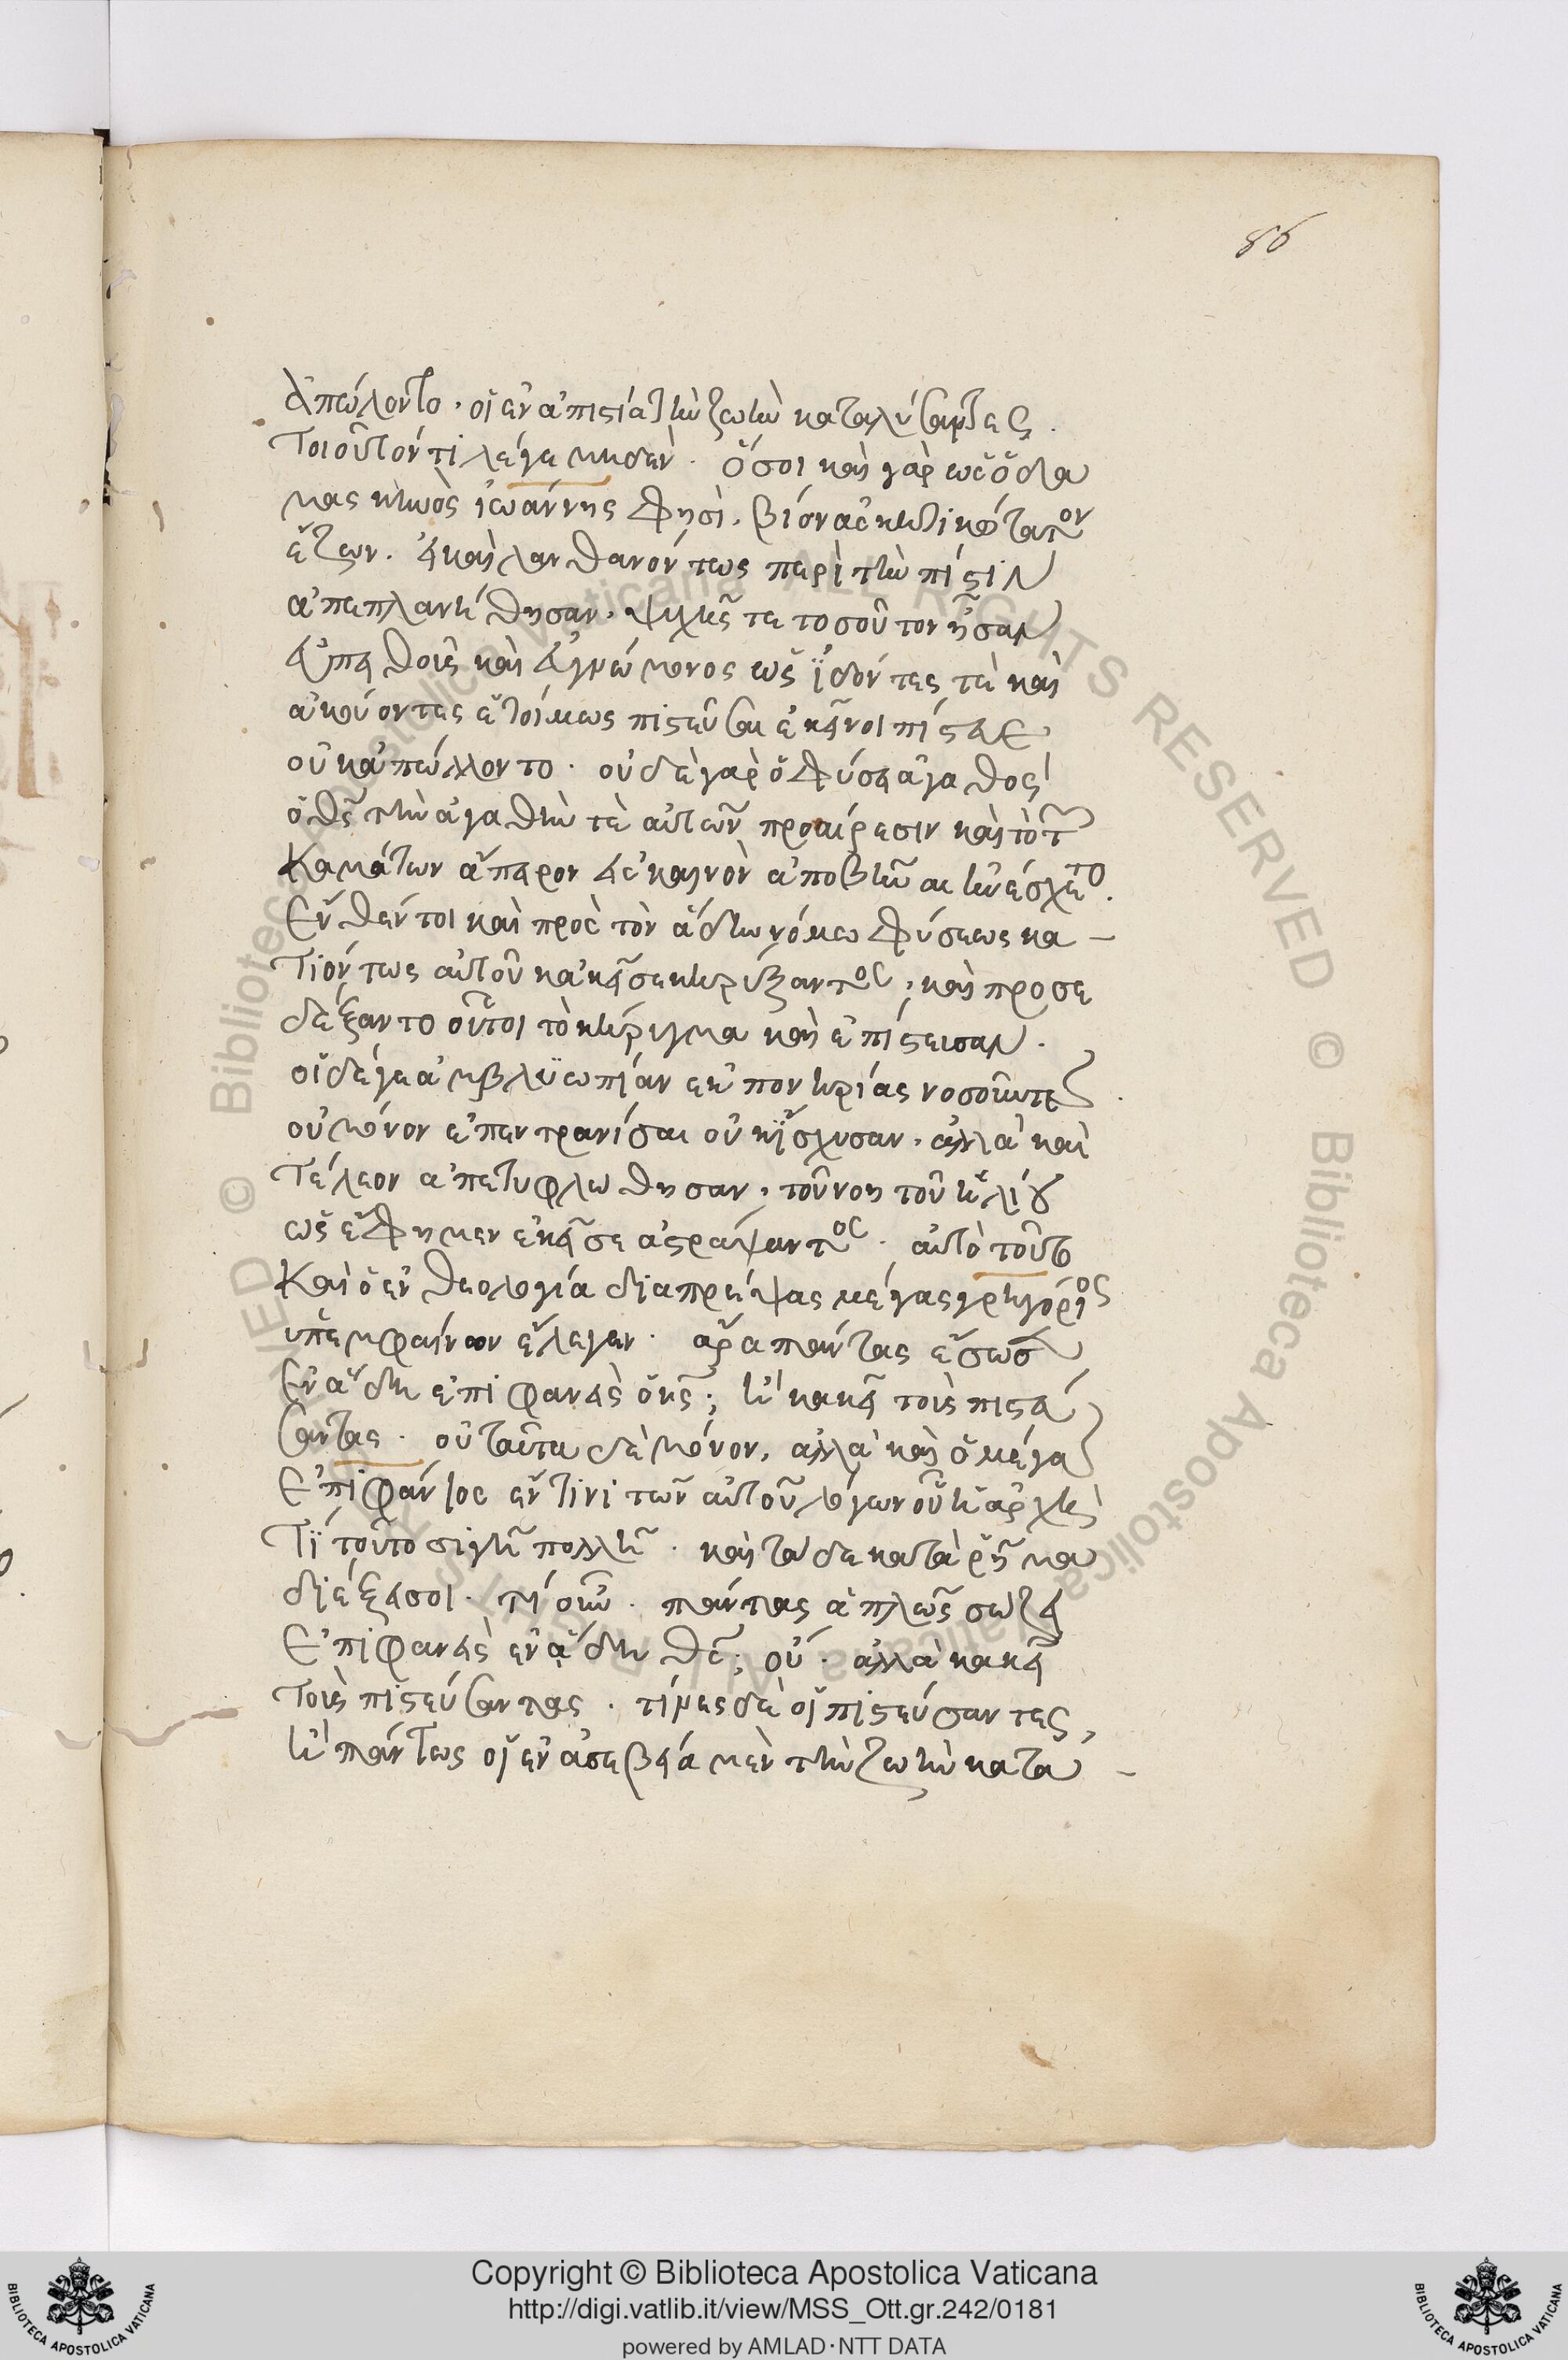 86
ἀπώλοντο, οἳ ἐν ἀπιστία τὴν ζωὴν καταλύσαντες.
τοιοῦτόν τι λέγε μηδέν. ὅσοι καὶ γὰρ ὡς ὁ δαμα
ϊωάννης φησὶ, βίον ἀσκητικώτατον
περὶ τὴν πίστιν
ἀπεπλανήθησαν, ψυχῆς τε τοσοῦτον ἦσαν
εὐπειθοῦς καὶ εὐγνώμονος ὡς ἰδόντες τὲ καὶ
ἀκούοντες ἑτοίμως πιστεῦσαι ἐκεῖνοι πίστει
οὐκ ἀπώλλοντο. οὐδὲ γὰρ ὁ φύσει ἀγαθὸς
ὁ θς τὴν ἀγαθὴν τὲ αὐτῶν προαίρεσιν καὶ τὸ τῶν
καμάτων ἄπειρον εἰς καινὸν ἀποβῆναι ἠνέσχετο.
ἔνθέν τοι καὶ πρὸς τὸν ἅδην νόμω φύσεως κα –
τιόντως αὐτοῦ κἀκεῖσε κηρύξαντος, καὶ προσε
δέξαντο οὗτοι τὸ κήρυγμα καὶ ἐπίστευσαν.
οἱ δέ γε ἀμβλυωπίαν ἐκ πονηρίας νοσοῦντες.
οὐ μόνον ἐπεντρανίσαι οὐκ ἴσχυσαν, ἀλλὰ καὶ
τέλεον ἀπετυφλώθησαν, τοῦ νοητοῦ ἡλίου
ὡς ἔφημεν ἐκεῖσε ἀστράψαντος. αὐτὸ τοῦτο
καὶ ὁ ἐν θεολογία διαπρέψας μέγας γρηγόριος
ὑπεμφαίνων ἔλεγεν. ἆρα πάντας ἔσωσεν
ἐν ἅδη ἐπιφανεὶς ὁ κς; ἢ κἀκεῖ τοὺς πιστεύ
σαντας. οὐ ταῦτα δὲ μόνον, ἀλλὰ καὶ ὁ μέγας
ἐπιφάνιος ἔν τινι τῶν αὐτοῦ λόγων οὗ ἡ ἀρχὴ
τί τοῦτο σιγὴ πολλὴ. καὶ τάδε κατὰ ῥῆμα
διέξεισοι. τί οὖν. πάντας ἁπλῶς σώζει
ἐπιφανεὶς ἐν ἅδη θς; οὔ. ἀλλὰ κἀκεῖ
τοὺς πιστεύσαντας. τίνες δὲ οἱ πιστεύσαντες,
ἢ πάντως οἳ ἐν ἀσεβεία μὲν τὴν ζωὴν κατα –
Copyright © Biblioteca Apostolica Vaticana
http://digi.vatlib.it/view/MSS_Ott.gr.242/0181
powered by AMLAD·NTT DATA
BIBLIOTECA APOSTOLICA VATICANA
BIBLIOTECA APOSTOLICA VATICANA